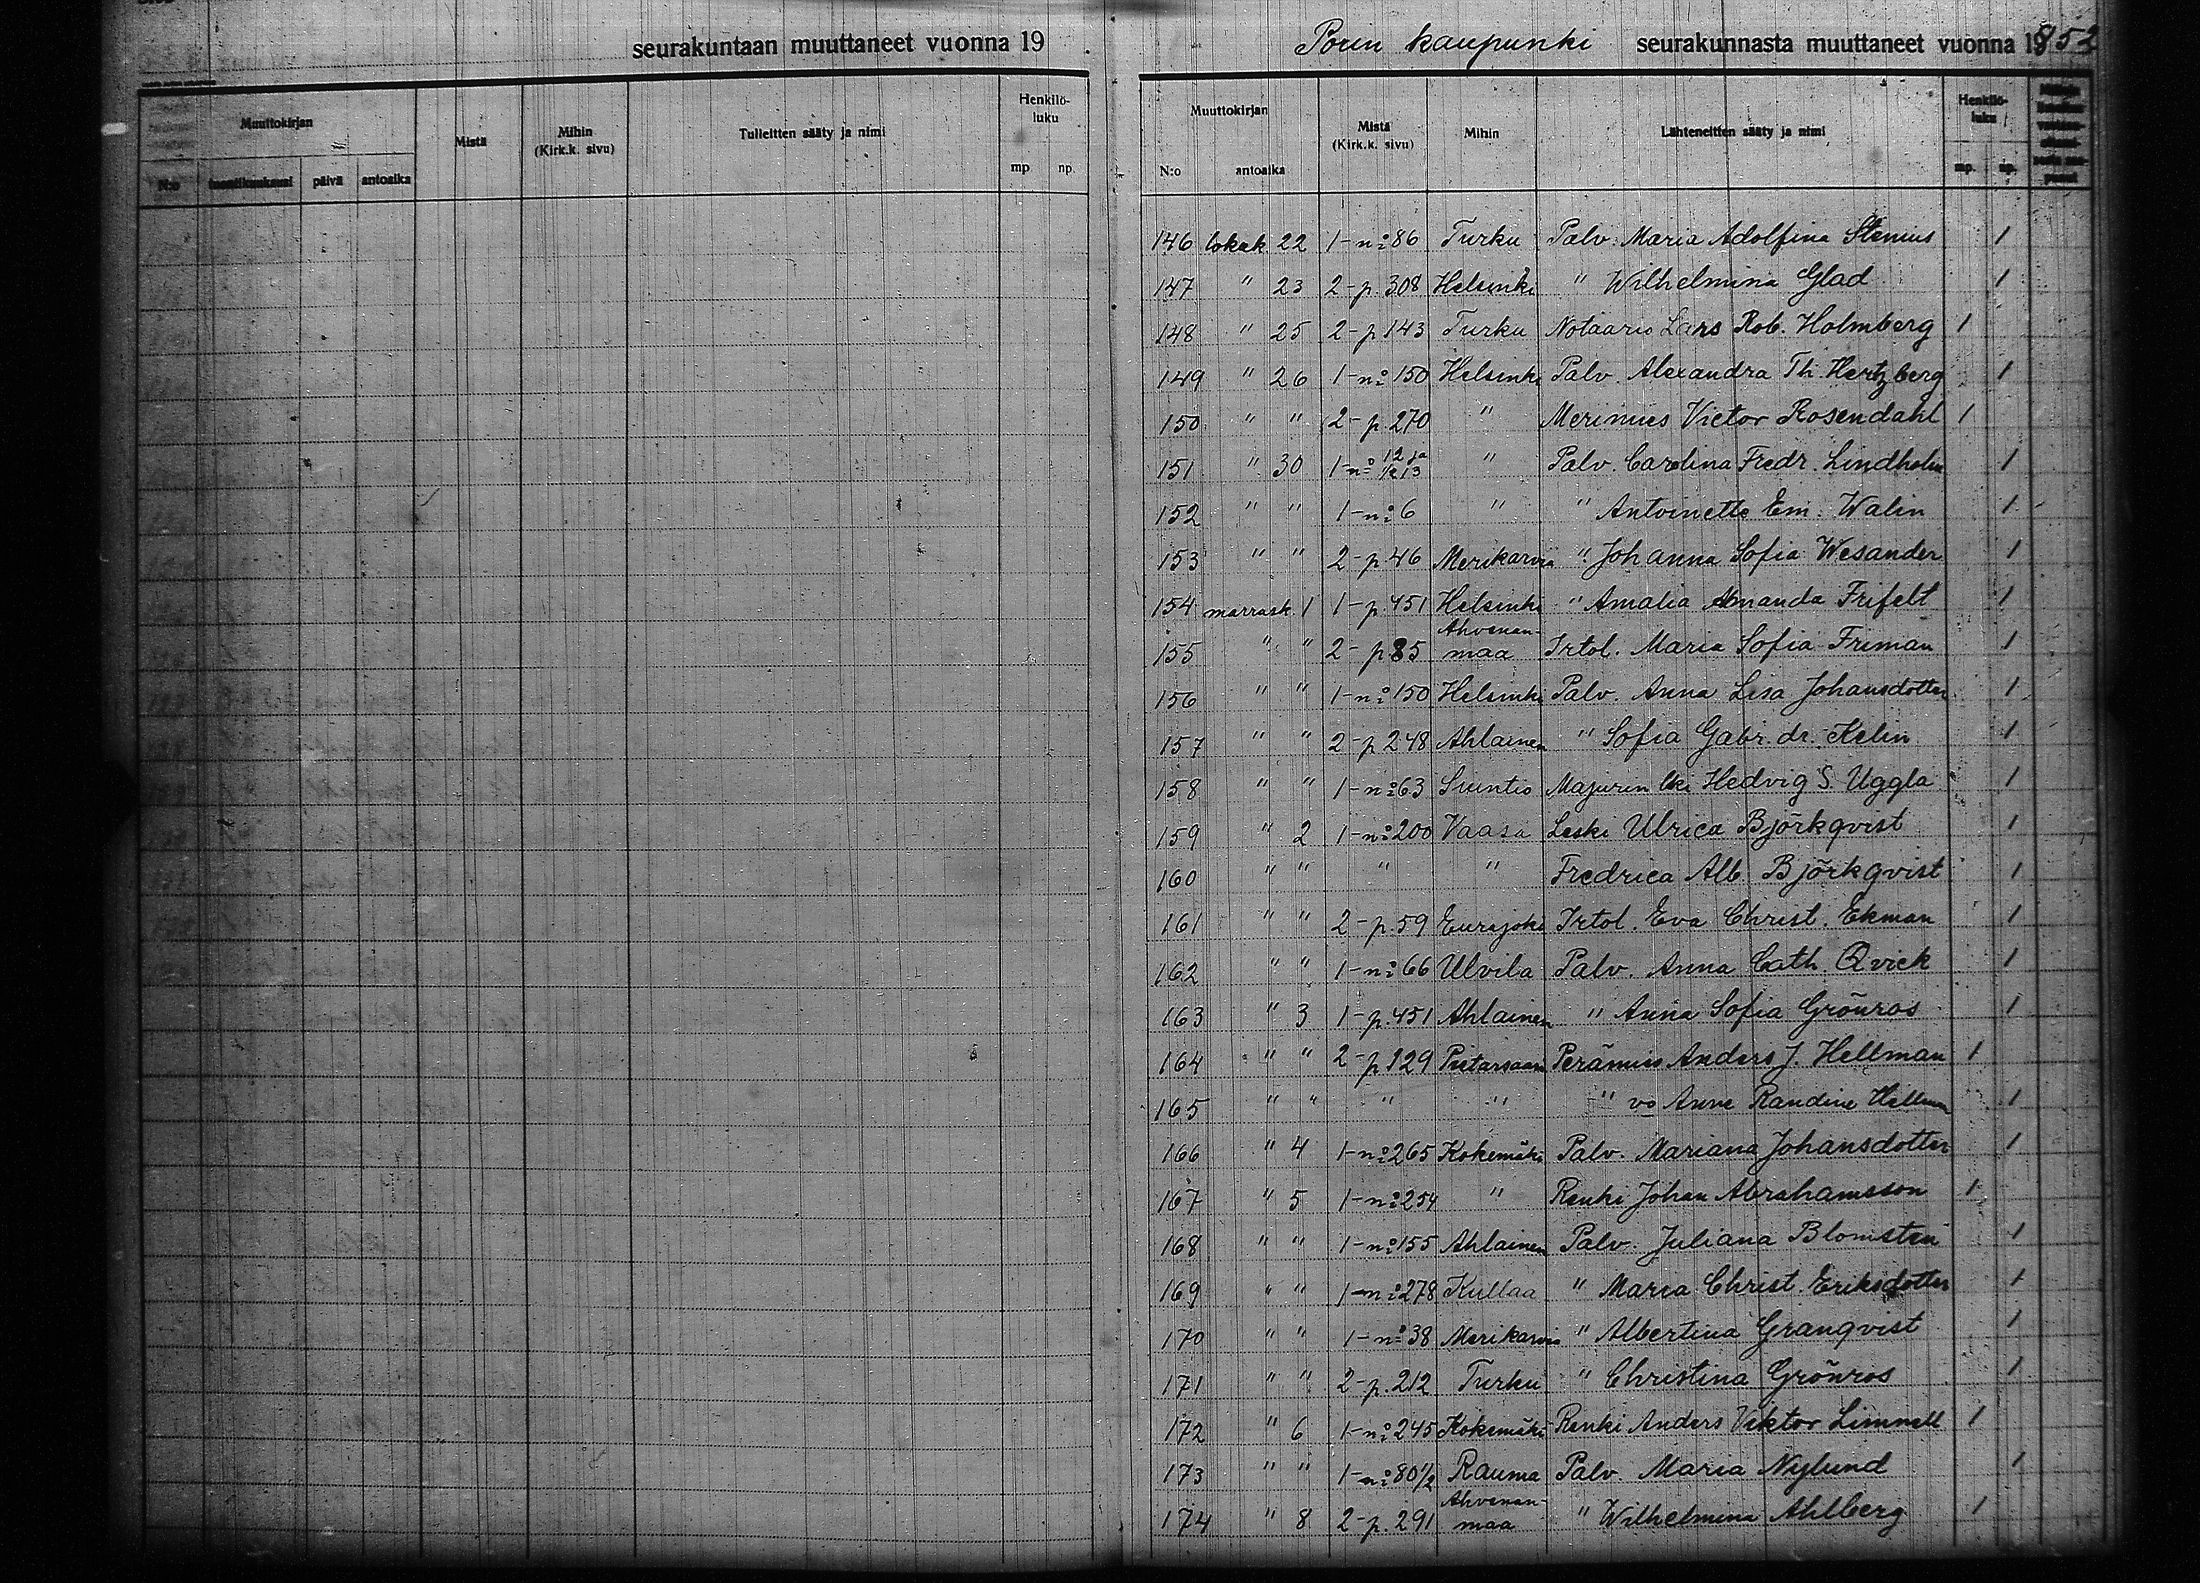 seurakuntaan muuttaneet vuonna 19
Muuttokirjan Mistä Mihin (Kirk.k. sivu) Tulleitten sääty ja nimi Henkilö-luku
N:o päivä antoaika mp. np.
Porin kaupunki seurakunnasta muuttaneet vuonna 1852
Muuttokirjan Mistä (Kirk.k. sivu) Mihin Lähteneitten sääty ja nimi Henkilö-luku
N:o antoaika mp. np.
146 lokak 22 1-no 86 Turku Palv. Maria Adolfina Stenius 1
147 " 23 2-p. 308 Helsinki " Wilhelmina Glad 1
148 " 25 2-p 143 Turku Notaario Lars Rob. Holmberg 1
149 " 26 1-no 150 Helsinki Palv. Alexandra Th. Hertzberg 1
150 " " 2-p. 270 " Merimies Victor Rosendahl 1
151 " 30 1-no 12 ja " Palv. Carolina Fredr. Lindholm 1
152 " " 1-no 6 " " Antoinette Em. Walin 1
153 " " 2-p. 46 Merikarvia " Johanna Sofia Wesander 1
154 marrask. 1 1-p. 451 Helsinki " Amalia Amanda Frifelt 1
155 " " 2-p 85 Ahvenanmaa Irtol. Maria Sofia Friman 1
156 " " 1-no 150 Helsinki Palv. Anna Lisa Johansdotter 1
157 " " 2-p 248 Ahlainen " Sofia Gabr. dr. Kelin 1
158 " " 1-no 63 Siuntio Majurin lki Hedvig S. Uggla 1
159 " 2 1-no 200 Vaasa Leski Ulrica Björkqvist 1
160 " " " " Fredrica Alb. Björkqvist 1
161 " " 2-p. 59 Eurajoki Irtol. Eva Christ. Ekman 1
162 " " 1-no 66 Ulvila Palv. Anna Cath. Qvick 1
163 " 3 1-p. 451 Ahlainen " Anna Sofia Grönros 1
164 " " 2-p 129 Pietarsaari Perämies Anders J. Hellman 1
165 " " " " " vo Anne Randine Hellman 1
166 " 4 1-no 265 Kokemäki Palv. Mariana Johansdotter 1
167 " 5 1-no 254 " Renki Johan Abrahamsson 1
168 " " 1-no 155 Ahlainen Palv. Juliana Blomsten 1
169 " " 1-no 278 Kullaa " Maria Christ. Eriksdotter 1
170 " " 1-no 38 Merikarvia " Albertina Granqvist 1
171 " " 2-p. 212 Turku " Christina Grönros 1
172 " 6 1-no 245 Kokemäki Renki Anders Viktor Limnell 1
173 " " 1-no 80 1/2 Rauma Palv Maria Nylund 1
174 " 8 2-p. 291 Ahvenanmaa " Wilhelmina Ahlberg 1